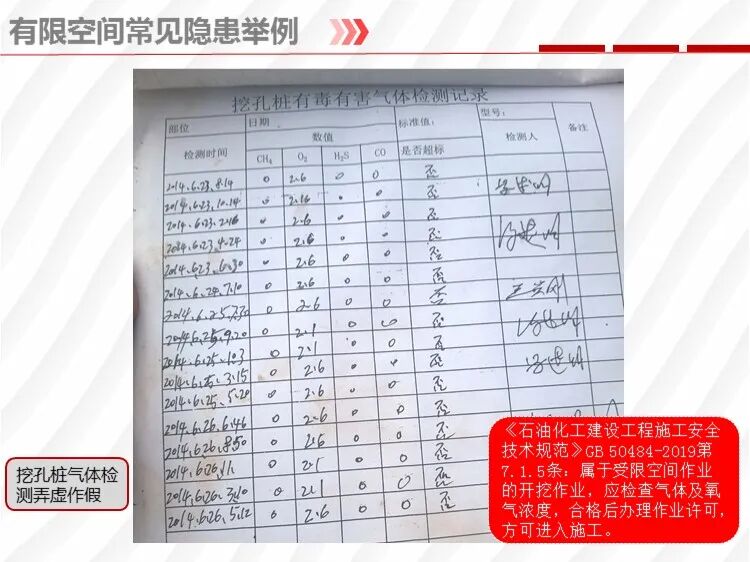 有限空间常见隐患举例
挖孔桩有毒有害气体检测记录
部位 日期 标准值: 型号:
检测时间 数值 是否超标 检测人 备注
CH₄ O₂ H₂S CO
2014.6.23.8.14 0 2.6 0 0 否
2014.6.23.10.14 0 2.16 0 0 否
2014.6.23.2.16 0 2.6 0 0 否
2014.6.23.4.24 0 2.6 0 0 否
2014.6.23.6.30 0 2.6 0 0 否
2014.6.24.7.10 0 2.6 0 0 否
2014.6.25.7.30 0 2.6 0 0 否
2014.6.25.9.20 0 2.1 0 0 否
2014.6.25.1.03 0 2.1 0 0 否
2014.6.25.3.15 0 2.6 0 0 否
2014.6.25.5.20 0 2.6 0 0 否
2014.6.26.6.46 0 2.6 0 0 否
2014.6.26.8.50 0 2.6 0 0 否
2014.6.26.11. 0 2.5 0 0 否
2014.6.26.3.10 0 2.1 0 0 否
2014.6.26.5.12 0 2.6 0 0 否
挖孔桩气体检
测弄虚作假
《石油化工建设工程施工安全
技术规范》GB 50484-2019第
7.1.5条：属于受限空间作业
的开挖作业，应检查气体及氧
气浓度，合格后办理作业许可，
方可进入施工。